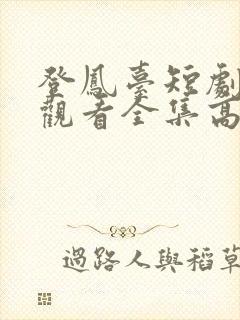 登鳳臺短劇
觀看全集高
過路人與稻草